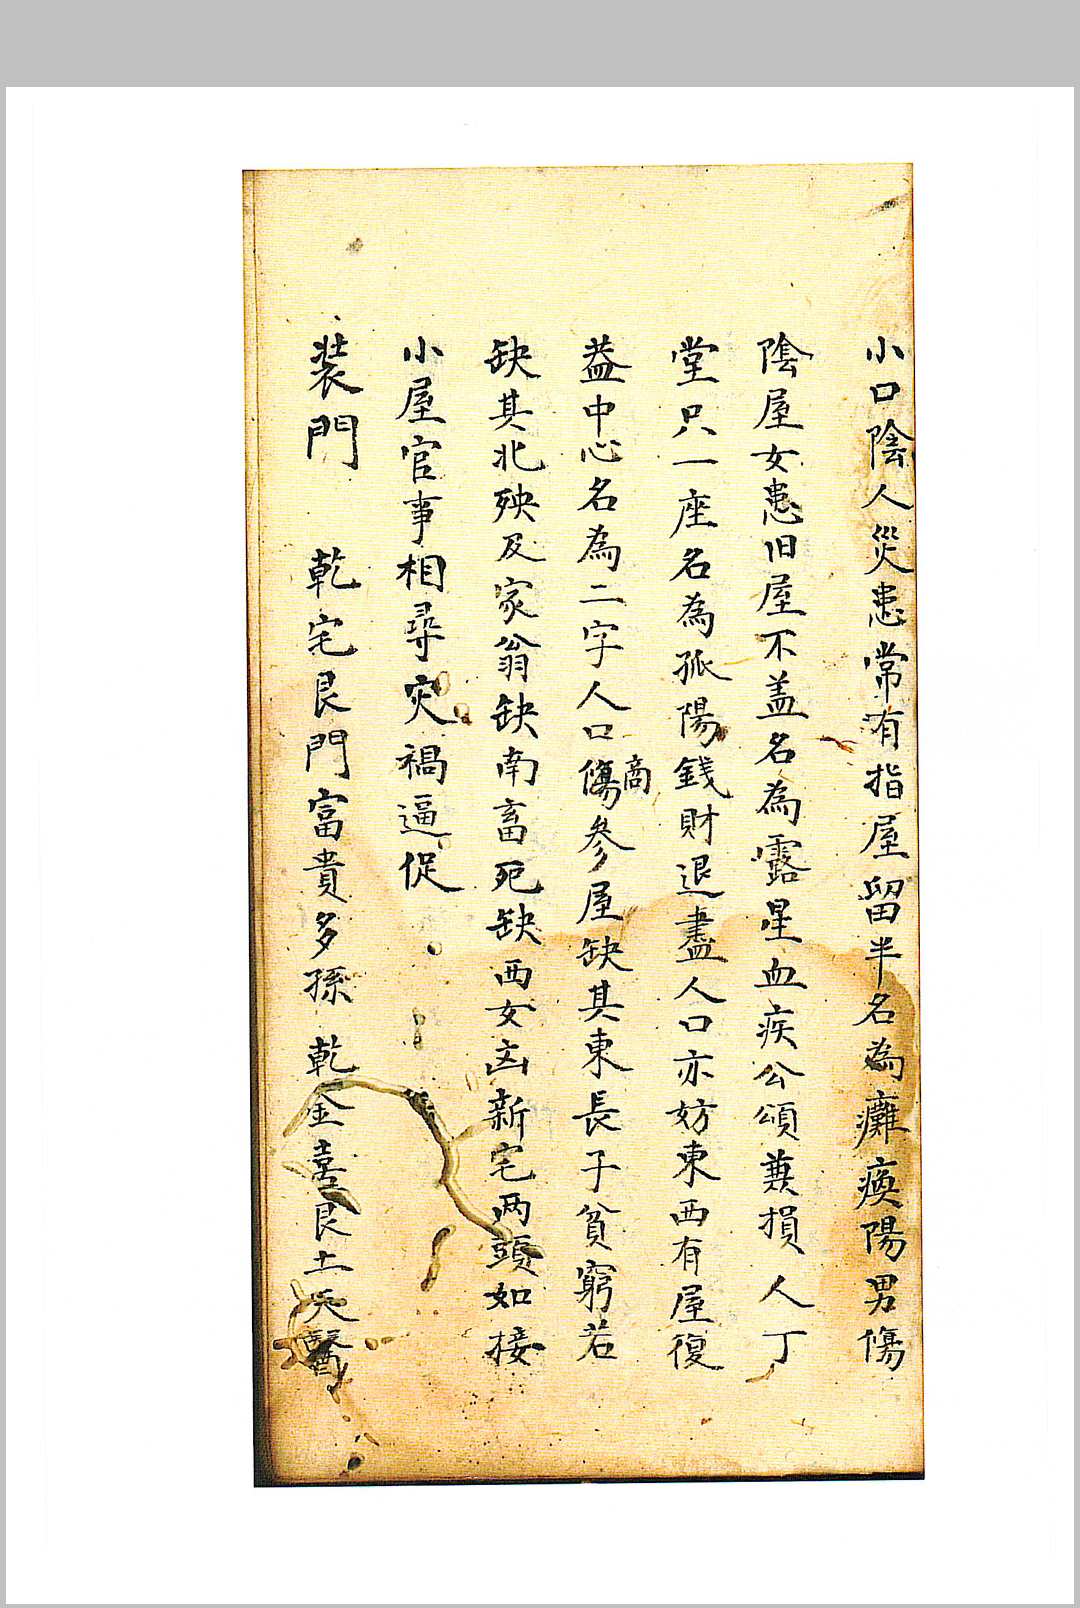 小口陰人災患常有指屋留半名為癱瘓陽男傷
陰屋女患旧屋不盖名為露星血疾公頌兼損人丁
堂只一座名為孤陽錢財退盡人口亦妨東西有屋復
葢中心名為二字人口傷商參屋缺其東長子貧窮若
缺其北殃及家翁缺南畜死缺西女凶新宅两頭如接
小屋官事相尋灾禍逼促
装門 乾宅艮門富貴多孫 乾金喜艮土天醫